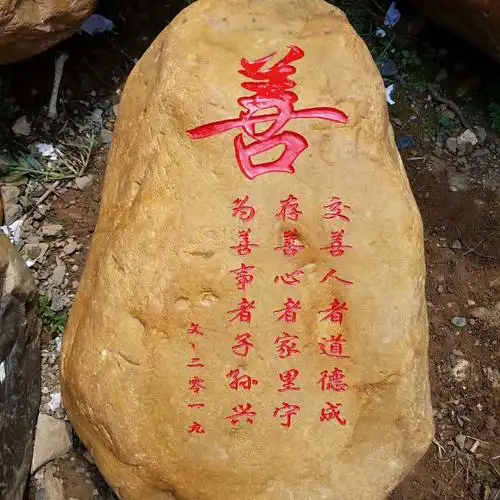 善
交善人者道德成
存善心者家里宁
为善事者子孙兴
文·二零一九